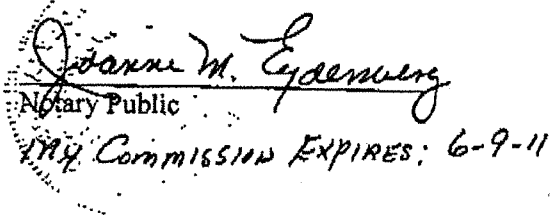 Joanne M. Eydenberg
Notary Public
My Commission Expires: 6-9-11